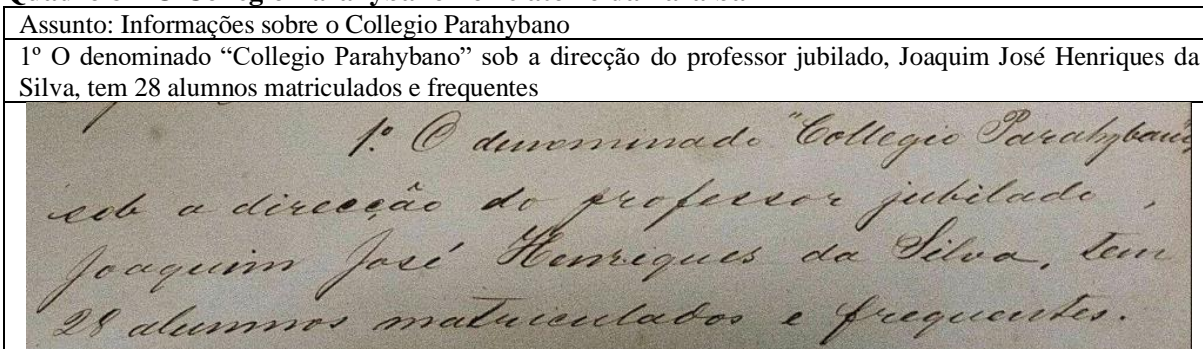 Assunto: Informações sobre o Collegio Parahybano
1º O denominado “Collegio Parahybano” sob a direcção do professor jubilado, Joaquim José Henriques da
Silva, tem 28 alumnos matriculados e frequentes
1º O denominado "Collegio Parahybano"
sob a direcção do professor jubilado,
Joaquim José Henriques da Silva, tem
28 alumnos matriculados e frequentes.